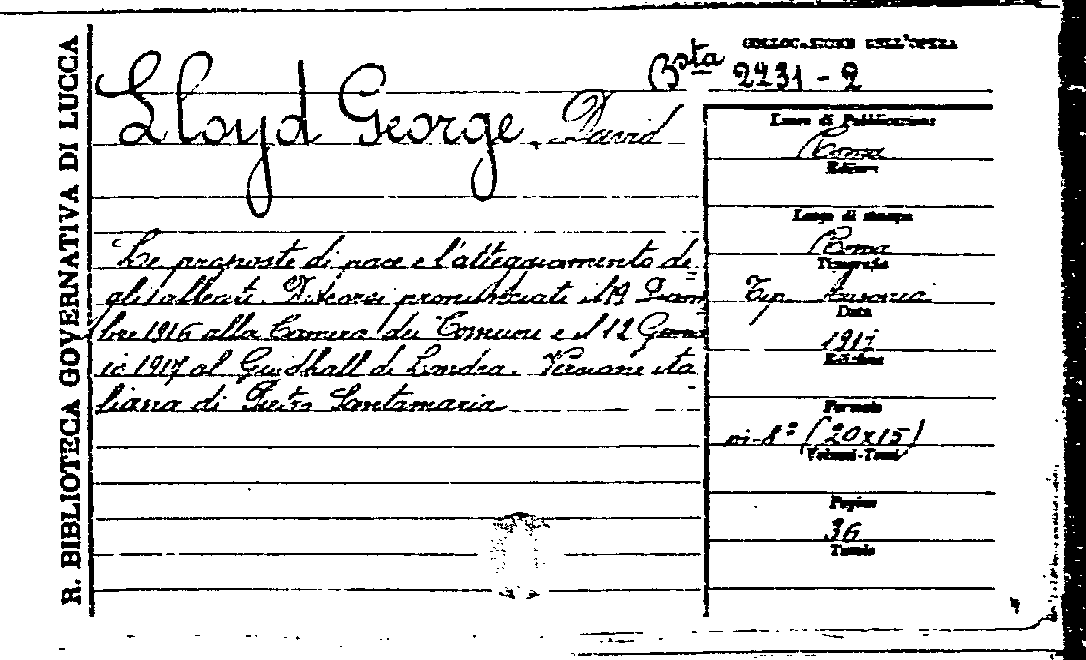 R. BIBLIOTECA GOVERNATIVA DI LUCCA
COLLOCAZIONE DELL'OPERA
Bsta 2231-2
Lloyd George, David
Le proposte di pace e l'atteggiamento de
gli alleati. Discorsi pronunziati il 19 Dicem
bre 1916 alla Camera dei Comuni e il 12 Genna
io 1917 al Guidhall di Londra. Versione ita
liana di Pietro Santamaria
Luogo di Pubblicazione
Roma
Editore
Luogo di stampa
Roma
Tipografia
Tip. Ausonia
Data
1917
Edizione
Formato
in-8° (20x15)
Volumi-Tomi
Pagine
36
Tavole